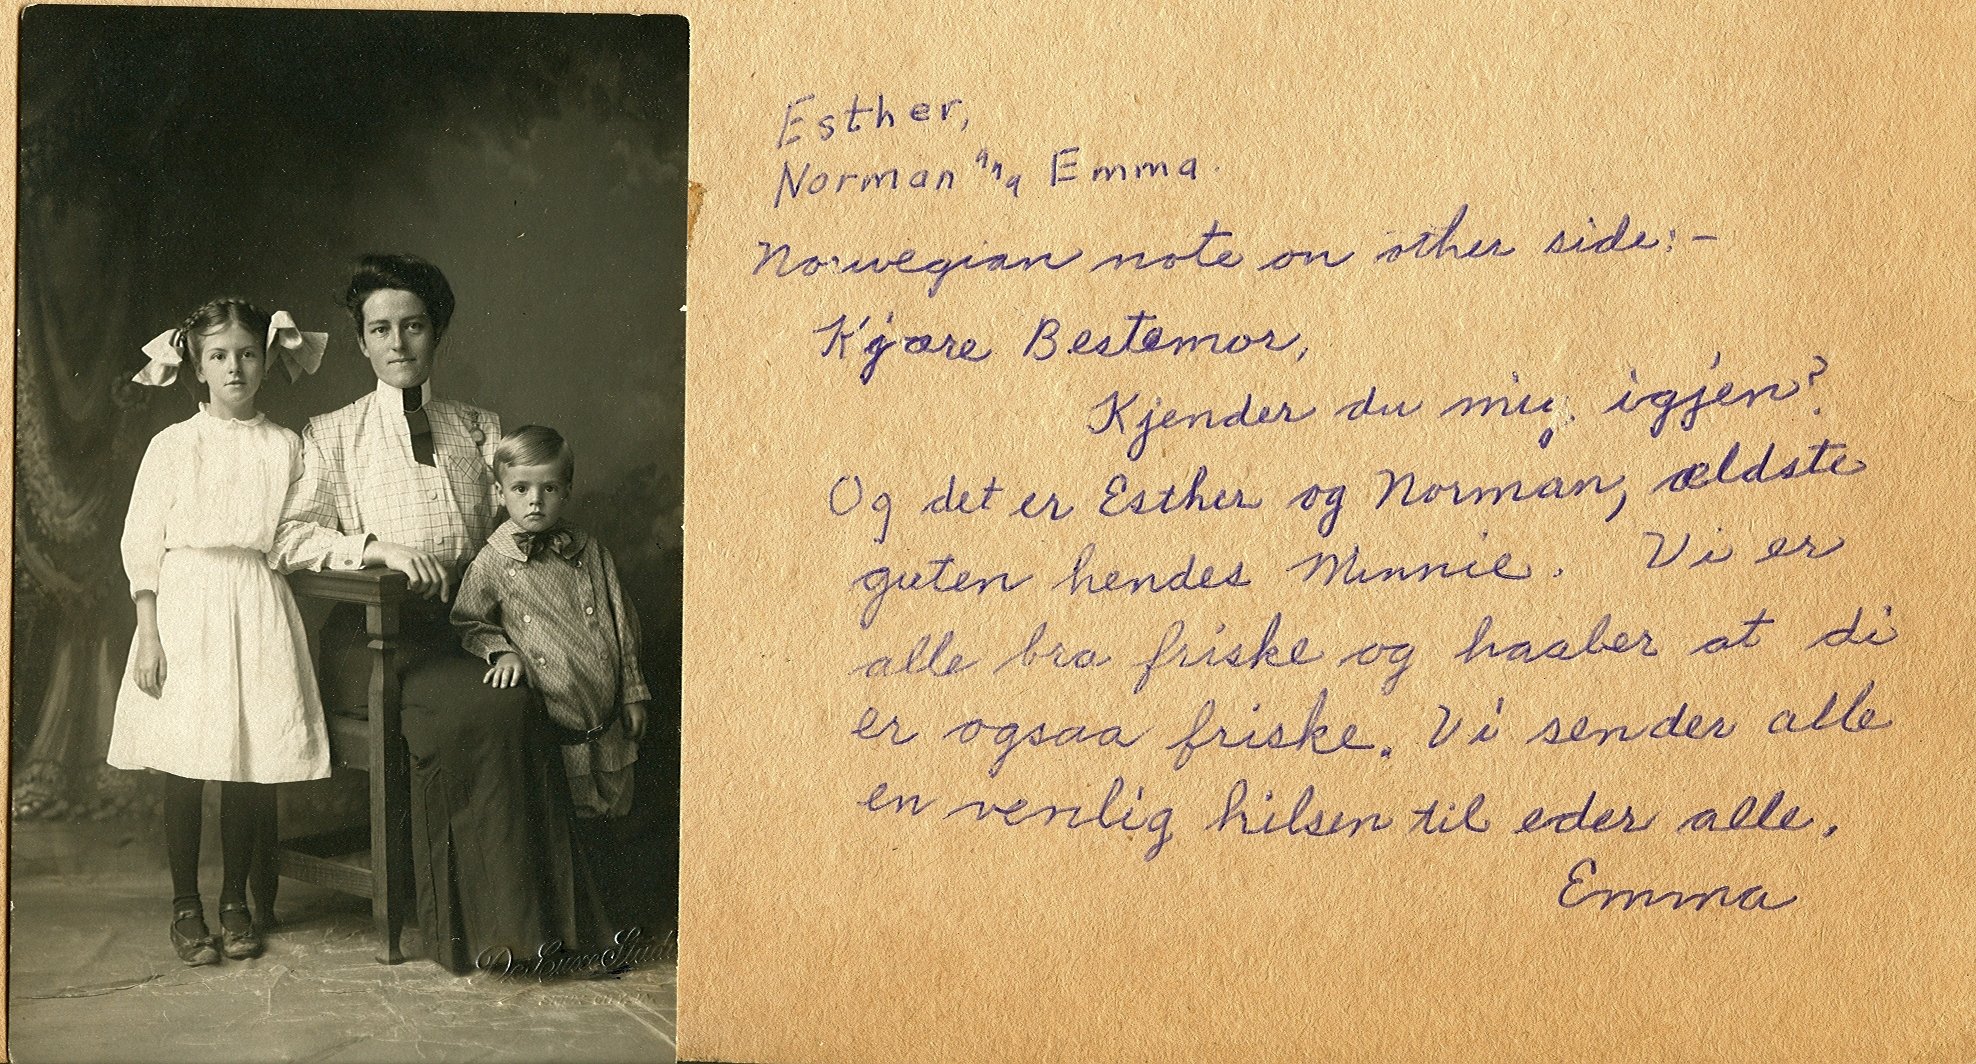 Esther,
Norman and Emma.
Norwegian note on other side:-
Kjære Bestemor,
Kjender du mig igjen?
Og det er Esther og Norman, ældste
guten hendes Minnie. Vi er
alle bra friske og haaber at di
er ogsaa friske. Vi sender alle
en venlig hilsen til eder alle.
Emma
De Luxe Studio